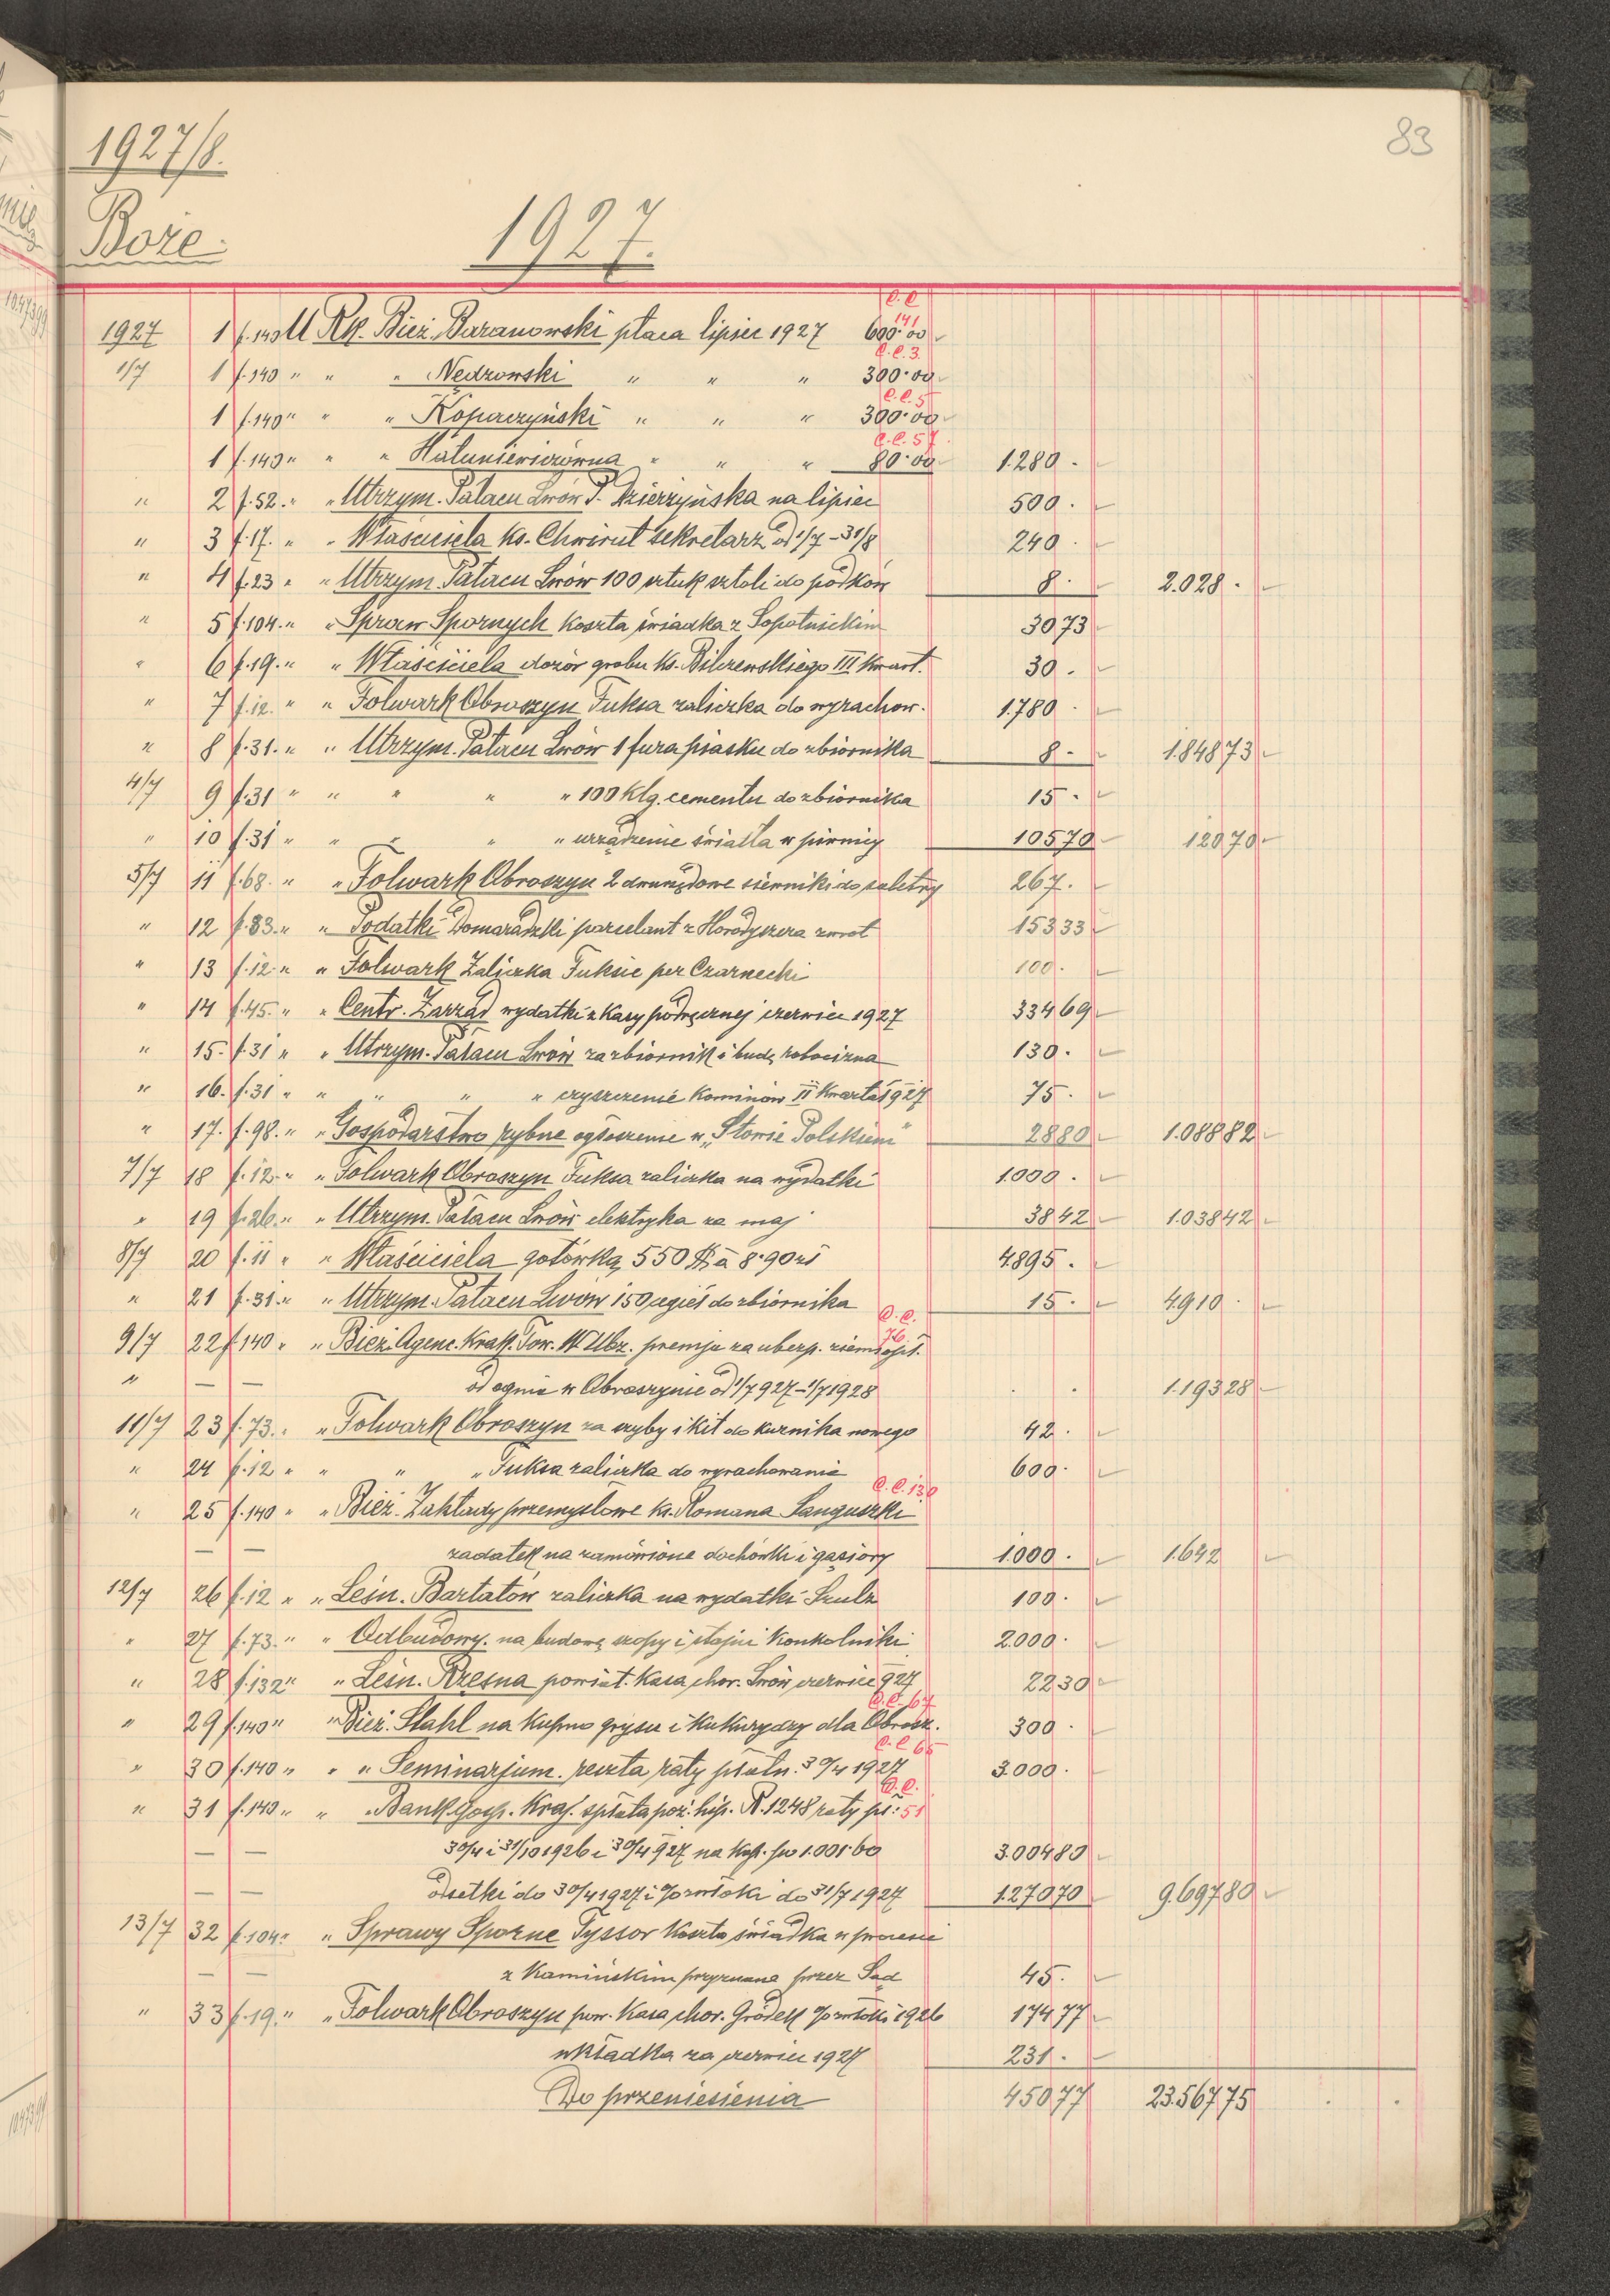 83
1927/8.
Boże
1927.
C.C 141
1927 1 f. 140 U Rk. Bież. Baranowski płaca lipiec 1927 600.00
C.C.3.
1/7 1 f. 140 " " " Nędzowski " " " 300.00
C.C.5
1 f. 140 " " " Kopaczyński " " " 300.00
C.C.57.
1 f. 140 " " " " " " 80.00 1.280.
" 2 f. 52. " " Utrzym. Pałacu Lwów P. Dzierżyńska na lipiec 500.
" 3 f. 17. " " Właściciela ks. Chwirut sekretarz od 1/7-31/8 240.
" 4 f. 23 " " Utrzym. Pałacu Lwów 100 sztuk sztoli do podków 8. 2.028.
" 5 f. 104. " " Spraw Spornych koszta świadka z Sopotnickim 30 73
" 6 f. 19. " " Właściciela dozór grobu ks. Bilczewskiego III kwart. 30.
" 7 f. 12. " " Folwark Obroszyn Fuksa zaliczka do wyrachow. 1.780.
" 8 f. 31. " " Utrzym. Pałacu Lwów 1 fura piasku do zbiornika 8- 1.848 73
4/7 9 f. 31 " " " " " 100 klg. cementu do zbiornika 15.
" 10 f. 31 " " " " " urządzenie światła w piwnicy 105 70 120 70
5/7 11 f. 68. " " Folwark Obroszyn 2 sienniki do saletry 267.
" 12 f. 83. " " Podatki Domaradzki parcelant z Horodyszcza zwrot 153 33
" 13 f. 12. " " Folwark Zaliczka Fuksie per Czarnecki 100.
" 14 f. 45. " " Centr. Zarząd wydatki z kasy podręcznej czerwiec 1927 334 69
" 15. f. 31 " " Utrzym. Pałacu Lwów za zbiornik i budę robocizna 130.
" 16. f. 31 " " " " " czyszczenie kominów II kwartał 927 75.
" 17. f. 98. " " Gospodarstwo rybne ogłoszenie w "Słowie Polskiem" 28 80 1.088 82
7/7 18 f. 12. " " Folwark Obroszyn Fuksa zaliczka na wydatki 1.000.
" 19 f. 26. " " Utrzym. Pałacu Lwów elektryka za maj 38 42 1.038 42
8/7 20 f. 11 " " Właściciela gotówką 550 $ à 8.90 zł 4.895.
" 21 f. 31. " " Utrzym. Pałacu Lwów 150 cegieł do zbiornika 15. 4.910.
C.C. 76.
9/7 22 f. 140 " " Bież. Agenc. Krak. Tow. W. Ubz. premja za ubezp. ziemiopł.
" — — od ognia w Obroszynie od 1/7 927-1/7 1928 1.193 28
11/7 23 f. 73. " " Folwark Obroszyn za szyby i kit do kurnika nowego 42.
" 24 f. 12 " " " " Fuksa zaliczka do wyrachowania 600.
C.C.130
" 25 f. 140 " " Bież. Zakłady przemysłowe ks. Romana Sanguszki
— — zadatek na zamówione dachówki i gąsiory 1.000. 1.642
12/7 26 f. 12 " " Leśn. Bartatów zaliczka na wydatki Szulz 100.
" 27 f. 73. " " Odbudowy. na budowę szopy i stajni Konkolniki 2.000.
" 28 f. 132 " " Leśn. Rzesna powiat. Kasa chor. Lwów czerwiec 927 22 30
C.C. 67
" 29 f. 140 " " Bież. Stahl na kupno grysu i kukurydzy dla Obrosz. 300.
C.C 65
" 30 f. 140 " " " Seminarjum. reszta raty płatn. 30/4 1927 3.000.
C.C. 51
" 31 f. 140 " " " Bank Gosp. Kraj. spłata poż. hip. R. 1248 raty pł:
— — 30/4 i 31/10 1926 i 30/4 927 na kap. po 1.001.60 3.004 80
— — odsetki do 30/4 1927 i % zwłoki do 31/7 1927 1.270 70 9.697 80
13/7 32 f. 104. " " Sprawy Sporne Tyssor koszta świadka w procesie
— — z Kamińskim przyznane przez Sąd 45.
" 33 f. 19. " " Folwark Obroszyn pow. Kasa chor. Gródek % zwłoki 1926 174 77
wkładka za czerwiec 1927 231.
Do przeniesienia 450 77 23.567 75